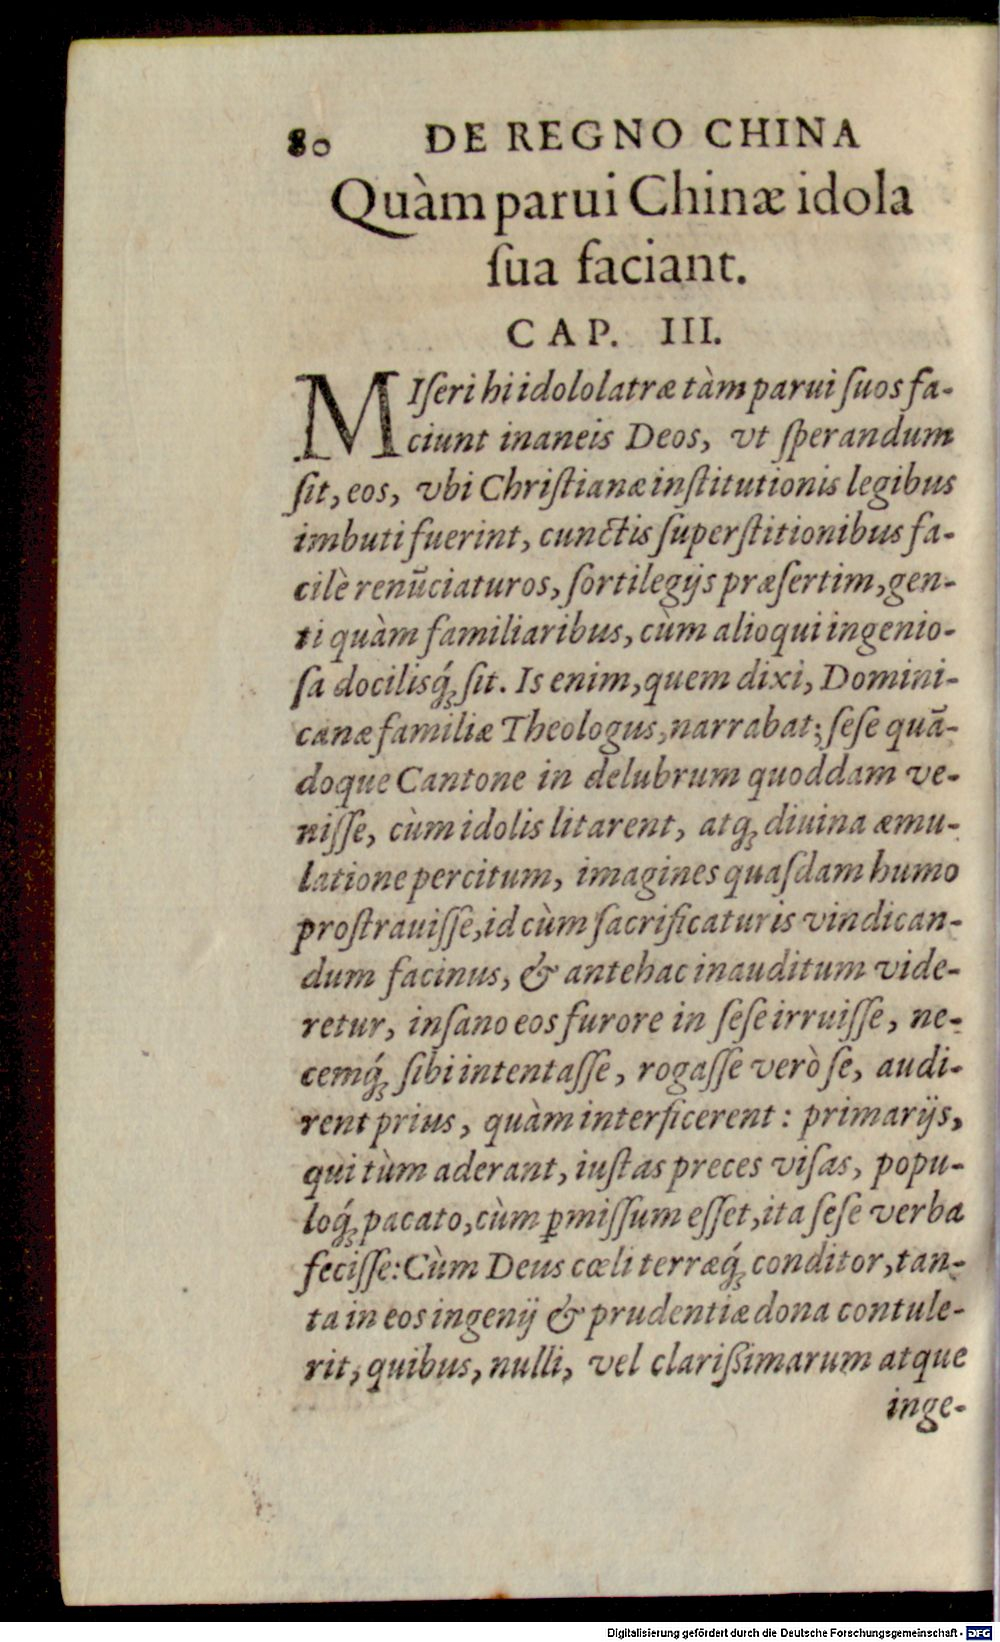 80 DE REGNO CHINA
Quàm parui Chinæ idola
ſua faciant.
CAP. III.
MIſeri hi idololatræ tàm parui ſuos fa-
ciunt inaneis Deos, vt ſperandum
ſit, eos, vbi Chriſtianæ inſtitutionis legibus
imbuti fuerint, cunctis ſuperſtitionibus fa-
cilè renūciaturos, ſortilegijs præſertim, gen-
ti quàm familiaribus, cùm alioqui ingenio-
ſa docilisq́; ſit. Is enim, quem dixi, Domini-
canæ familiæ Theologus, narrabat; ſeſe quā-
doque Cantone in delubrum quoddam ve-
niſſe, cùm idolis litarent, atq; diuina æmu-
latione percitum, imagines quaſdam humo
proſtrauiſſe, id cùm ſacrificaturis vindican-
dum facinus, & antehac inauditum vide-
retur, inſano eos furore in ſeſe irruiſſe, ne-
cemq́; ſibi intentaſſe, rogaſſe verò ſe, audi-
rent prius, quàm interficerent: primarijs,
qui tùm aderant, iuſtas preces viſas, popu-
loq́; pacato, cùm ꝑmiſſum eſſet, ita ſeſe verba
feciſſe: Cùm Deus cœli terræq́; conditor, tan-
ta in eos ingenij & prudentiæ dona contule-
rit; quibus, nulli, vel clariſsimarum atque
inge-
Digitalisierung gefördert durch die Deutsche Forschungsgemeinschaft - DFG